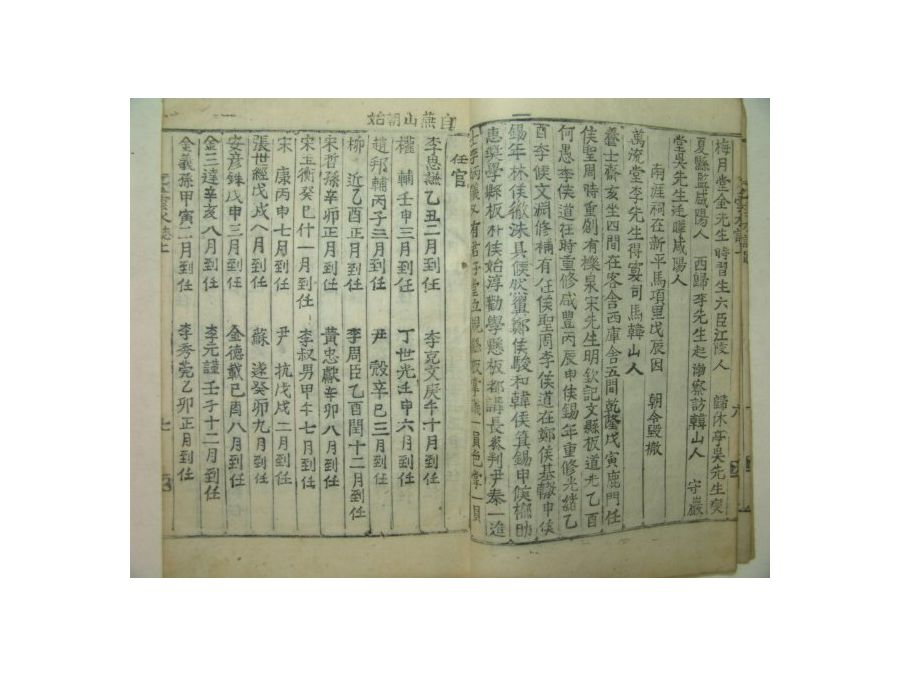 梅月堂金先生時習生六臣江陵人 歸休亭吳先生奕
夏縣監咸陽人 西歸李先生起浡察訪韓山人 守巖
堂吳先生廷驥咸陽人
南涯祠在新平馬項里戊辰因 朝令毀撤
萬流堂李先生得寘司馬韓山人
養士齋亥坐四間在客舍西庫舍五間乾隆戊寅鹿門任
侯聖周時重創有櫟泉宋先生明欽記文縣板道光乙酉
何愚李侯道在時重修咸豊丙辰申侯錫年重修光緖乙
酉李侯文稱修補有任侯聖周李侯道在鄭侯基轍申侯
錫年林侯徹洙具侯然鄭侯駿和韓侯箕錫申侯榴助
惠奬學縣板朴侯始淳勸學懸板都講長參判尹泰一進
任官
自燕山朝始
李思謙乙丑二月到任 李克文庚午十月到任
權 輔壬申三月到任 丁世光壬申六月到任
趙邦輔丙子二月到任 尹 殼辛巳三月到任
柳 近乙酉正月到任 李周臣乙酉閏十二月到任
宋哲孫辛卯正月到任 黃忠獻辛卯八月到任
宋玉衡癸巳什一月到任 李叔男甲午七月到任
宋 康丙申七月到任 尹 抗戊戌二月到任
張世經戊戌八月到任 蘇 遂癸卯九月到任
安彦銖戊申三月到任 金德載己酉八月到任
金三達辛亥八月到任 李元謹壬子十二月到任
金義孫甲寅二月到任 李秀莞乙卯正月到任